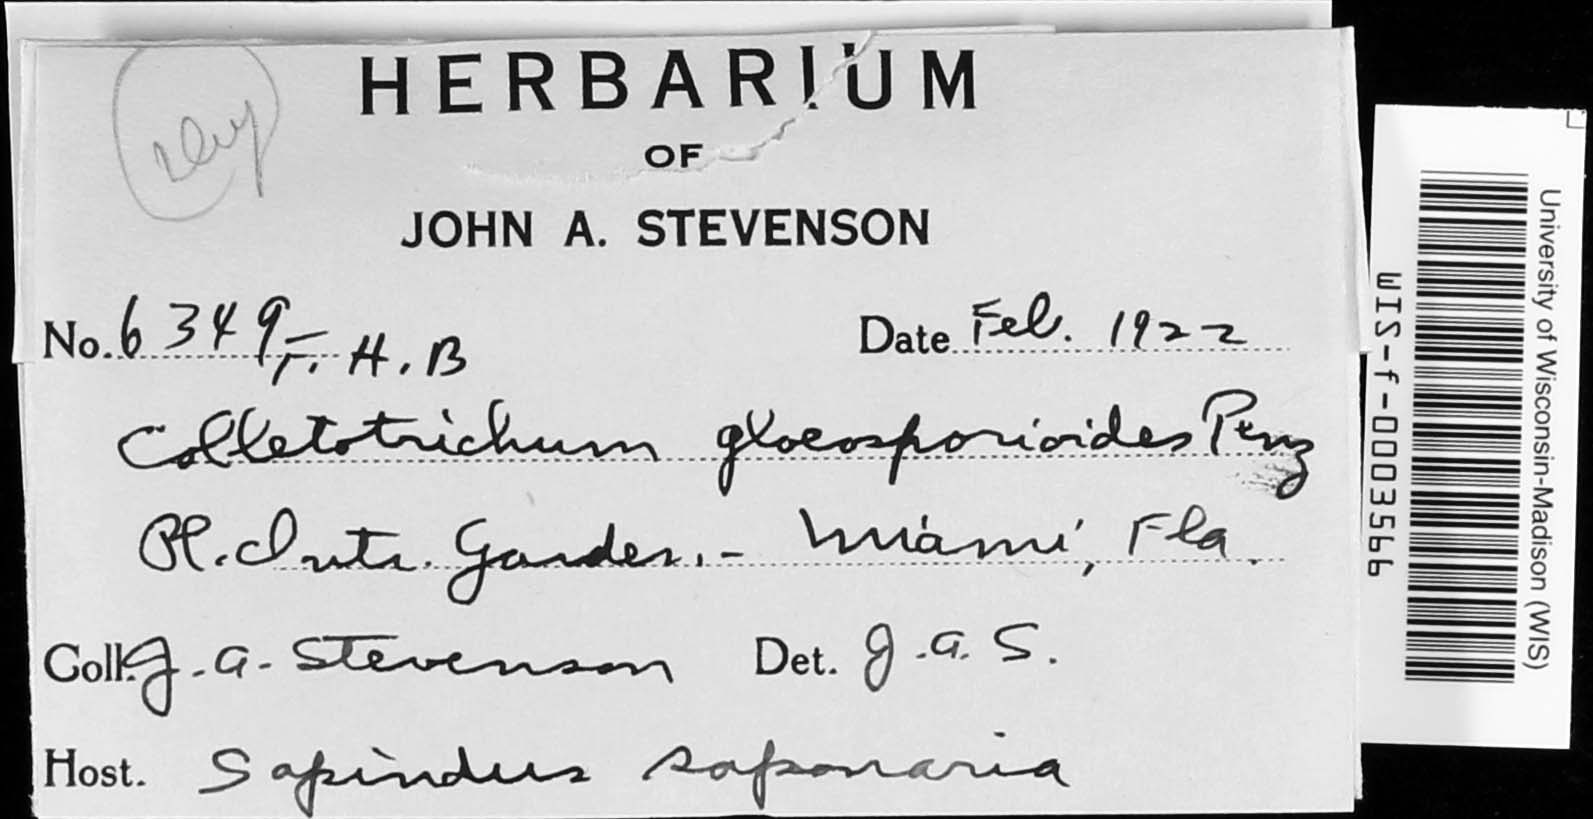 HERBARIUM
OF
JOHN A. STEVENSON
No. 6349 F. H. B
Date Feb. 1922
Colletotrichum gloeosporioides Penz
Pl. Intr. Garden. - Miami, Fla.
Coll. J. A. Stevenson Det. J. A. S.
Host. Sapindus saponaria
University of Wisconsin-Madison (WIS)
WIS-f-0003566